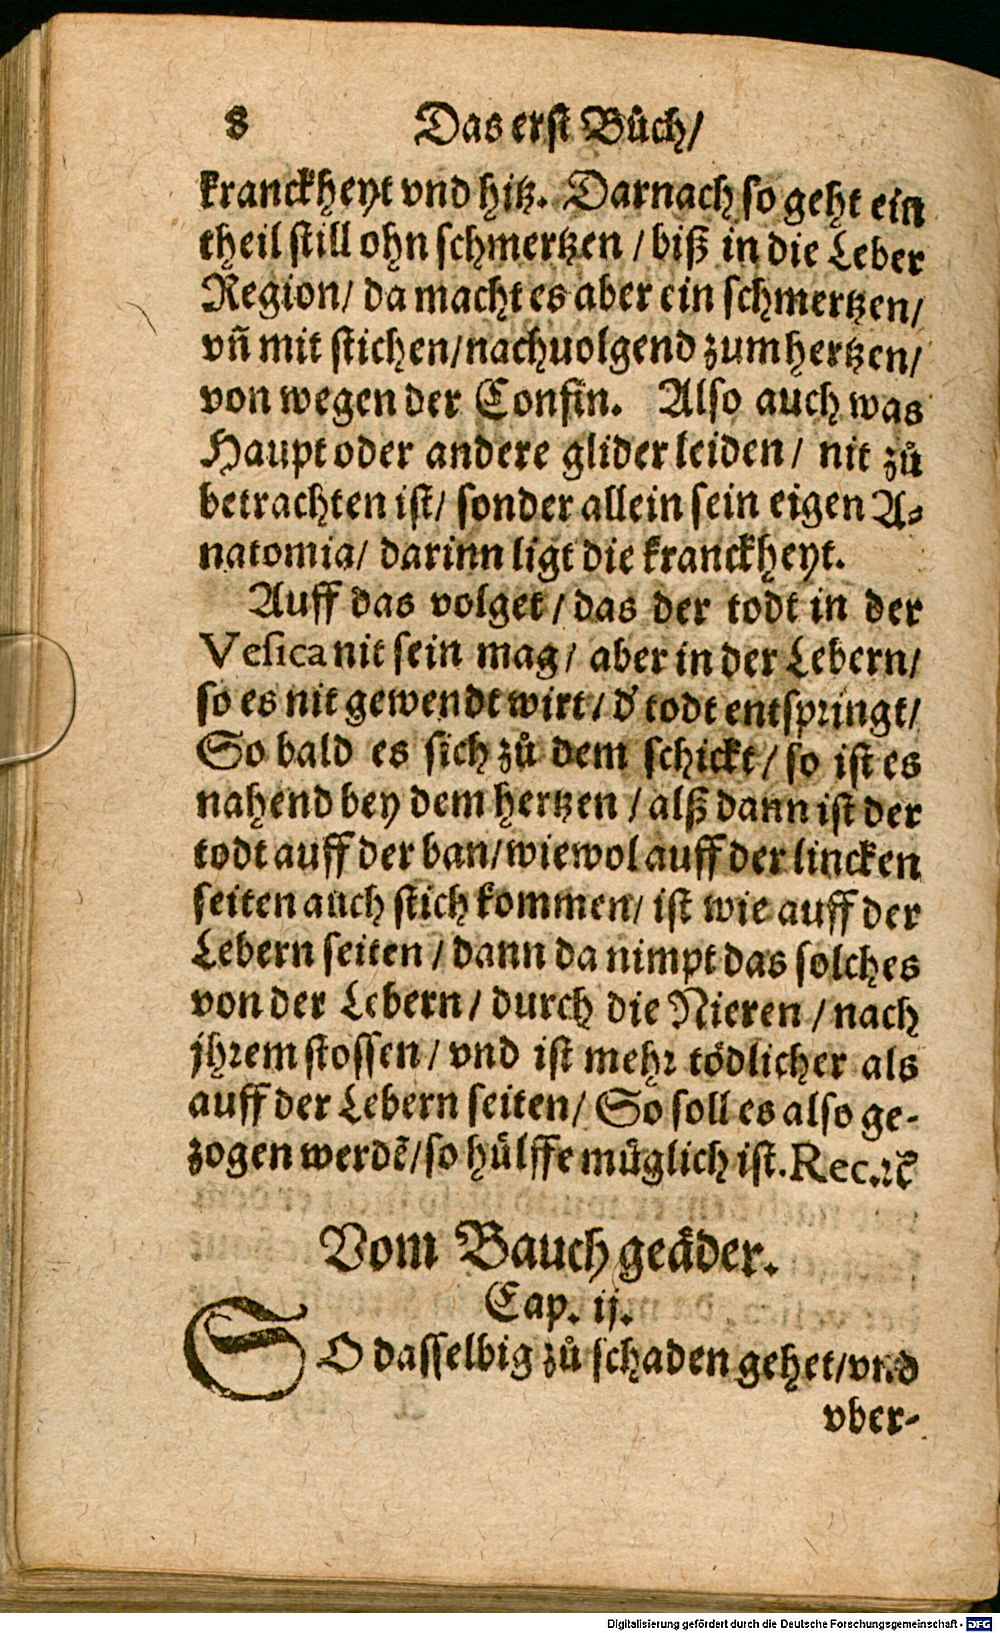 8 Das erst Bůch/
kranckheyt vnd hitz. Darnach so geht ein
theil still ohn schmertzen / biß in die Leber
Region/ da macht es aber ein schmertzen/
vñ mit stichen/nachuolgend zum hertzen/
von wegen der Confin. Also auch was
Haupt oder andere glider leiden / nit zů
betrachten ist/ sonder allein sein eigen A⸗
natomia/ darinn ligt die kranckheyt.
Auff das volget / das der todt in der
Vesica nit sein mag / aber in der Lebern/
so es nit gewendt wirt / d' todt entspringt/
So bald es sich zů dem schickt / so ist es
nahend bey dem hertzen / alß dann ist der
todt auff der ban/wiewol auff der lincken
seiten auch stich kommen/ ist wie auff der
Lebern seiten / dann da nimpt das solches
von der Lebern / durch die Nieren / nach
jhrem stossen / vnd ist mehr tödlicher als
auff der Lebern seiten/ So soll es also ge-
zogen werdẽ/so hülffe müglich ist. Rec. ꝛc̃
Vom Bauch geäder.
Cap. ij.
SO dasselbig zů schaden gehet/vnd
vber-
Digitalisierung gefördert durch die Deutsche Forschungsgemeinschaft - DFG